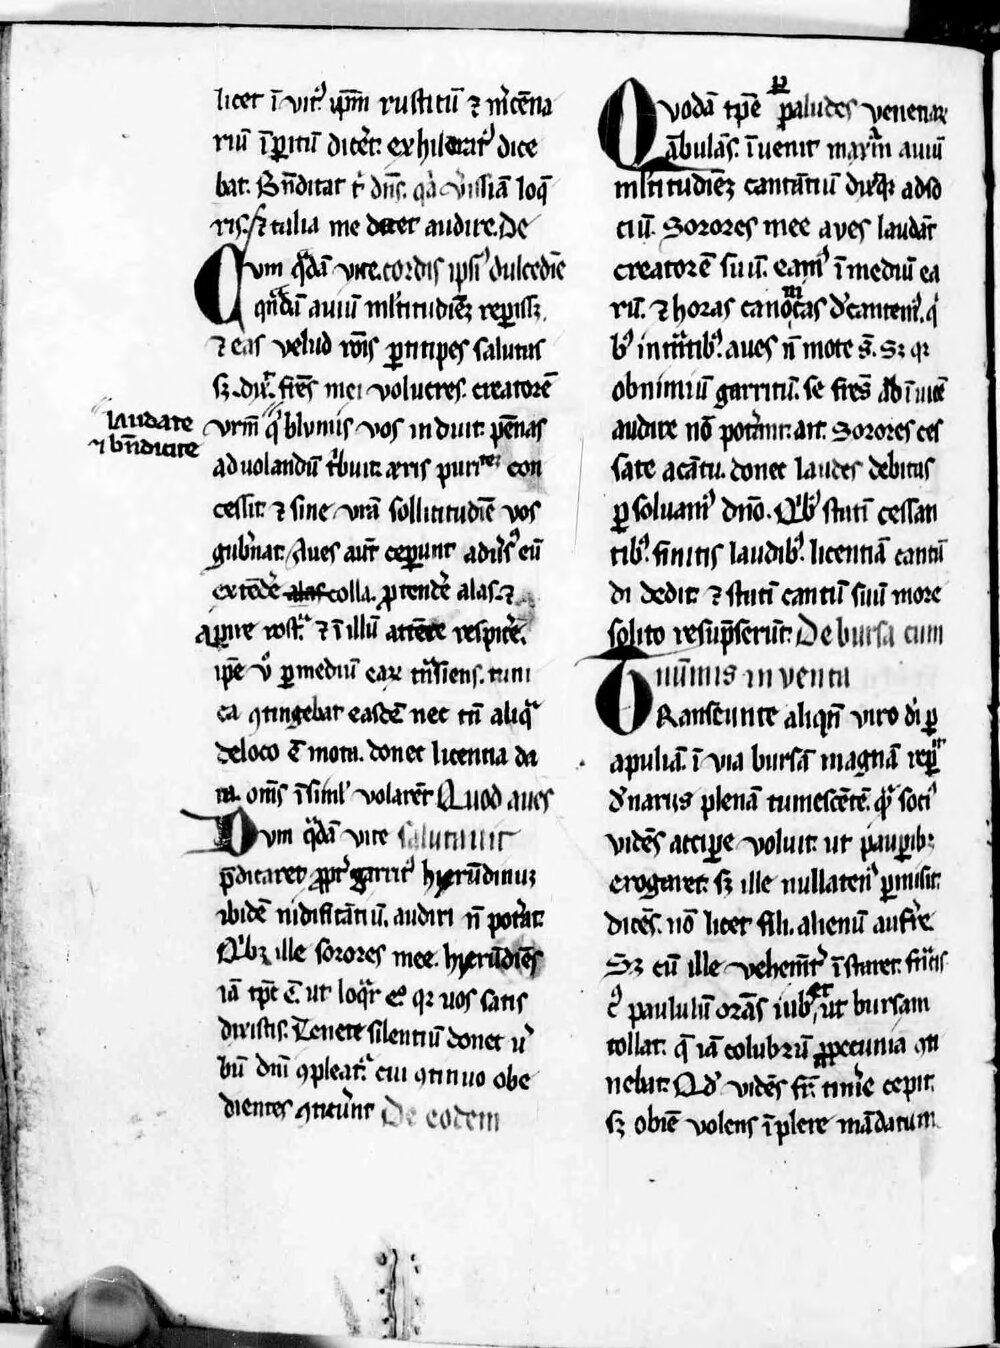 licet ī vitꝰ ip̄m rusticū ⁊ m̄cēna
riū īp̄itū dic̄et. exhilaratꝰ dice
bat. Bn̄dicat t̄ dn̄s. q̄a v̄issīa loq̄
ris. ⁊ talia me decet audire. De
Cum q̄dā vice. cordis ipsiꝰ dulcedīe
quādā aviū ml̄titudinē rep̄issꝫ.
⁊ eas velud rōis p̄ticipes salutas
sꝫ. dix̄. fr̄es mei volucres. creatorē
laudate
⁊ bn̄dicite
vr̄m q̄ plumis vos induit. pēnas
ad volandū t̄buit. aeris puritatē con
cessit. ⁊ sine vr̄a sollicitudīe vos
gub̄nat. Aves aut̄ cep̄unt adv̄sꝰ eū
extēde̅ alas colla. p̄tende̅ alas. ⁊
ap̄ire rostra ⁊ ī illū attēte respice̅.
ip̄e v̊ p̄ mediū eaꝝ tn̄siens. tuni
ca ꝯtingebat easdē nec tn̄ aliq̄
de loco ē mota. donec licentia da
ta. om̄s īsimlꝰ volarēt Quod aves
Dum q̄dā vice salutavit
p̄dicaret ꝓpt̄ garritꝰ hirūdinuꝫ
ibidē nidificātiū. audiri n̄ pot̄at.
Qꝰbꝫ ille sorores mee. hirūdīes
iā tp̄s ē ut loq̄r ego qꝛ uos satis
dixistis. Tenete silentiū donec v̄
bū dn̄i ꝯpleat̄. cui ꝯtinuo obe
dientes ꝯticūnt De eodem
Quodā tp̄e p̄ paludes venetiaꝝ
ābulās. īuenit maxīm aviū
ml̄titudinē cantātiū dixitqꝫ ad so
ciū. Sorores mee aves laudāt
creatorē suū. eamꝰ ī mediū ea
rū. ⁊ horas canoīcas d̄cantemꝰ. q̄
bꝰ intrātibꝰ. aves n̄ mote s̄. Sꝫ qꝛ
ob nimiū garritū. se fr̄es ad īuicē
audire nō pot̄ant. ait. Sorores ces
sate a cātu. donec laudes debitas
p̄soluamꝰ dn̄o. Qꝰbꝰ statī cessan
tibꝰ. finitis laudibꝰ. licentiā cantā
di dedit. ⁊ statī cantū suū more
solito resūpserūt. De bursa cum
nūmis inventa
TRanseunte aliqn̄ viro dī p̄
apuliā. ī via bursā magnā rep̄it
d̄nariis plenā tumescētē. q̄ sociꝰ
vidēs accip̄e voluit. ut paup̄ibꝫ
erogaret. sꝫ ille nullatenꝰ p̄misit.
dicēs. nō licet fili. alienū aufr̄e.
Sꝫ cū ille vehemēt̄ īstaret. fn̄cis
cꝰ paululū orās iubet, ut bursam
tollat. q̄ iā colubrū ꝓ pecunia ꝯti
nebat. Qd̄ vidēs fr̄. tim̄e cepit.
sꝫ obīe volens īplere mādatum